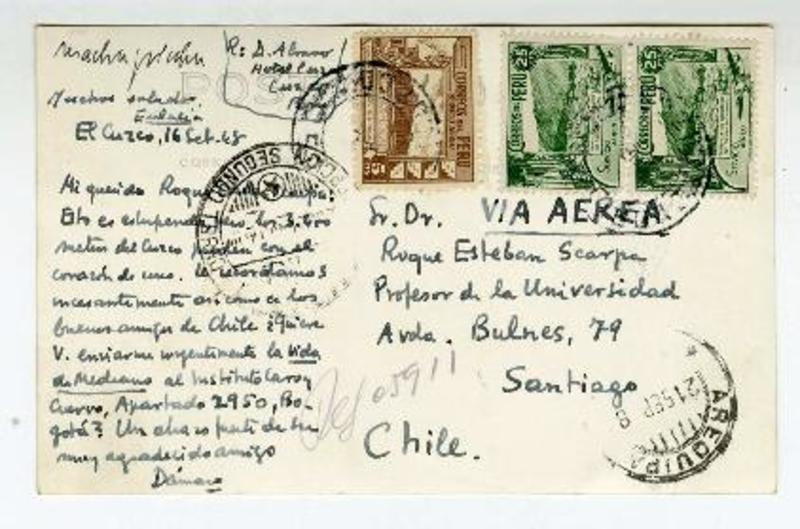 Machu picchu
R: D. Alonso
Hotel Cuz
Cuz
Muchos saludos
Eulalia
El Cuzco, 16 Set. 48
Mi querido Roque
Esto es estupendo, pero los 3.400
metros del Cuzco pueden con el
corazón de uno. Le recordamos
incesantemente así como a los
buenos amigos de Chile. ¿Quiere
V. enviarme urgentemente la Vida
de Medrano al Instituto Caro y
Cuervo, Apartado 2950, Bo-
gotá? Un abrazo fuerte de su
muy agradecido amigo
Dámaso
CORREOS DEL PERU
CORREOS DEL PERU 25
CORREOS DEL PERU 25
VIA AEREA
Sr. Dr.
Roque Esteban Scarpa
Profesor de la Universidad
Avda. Bulnes, 79
Santiago
Chile.
05911
21 SEP 8
AREQUIPA